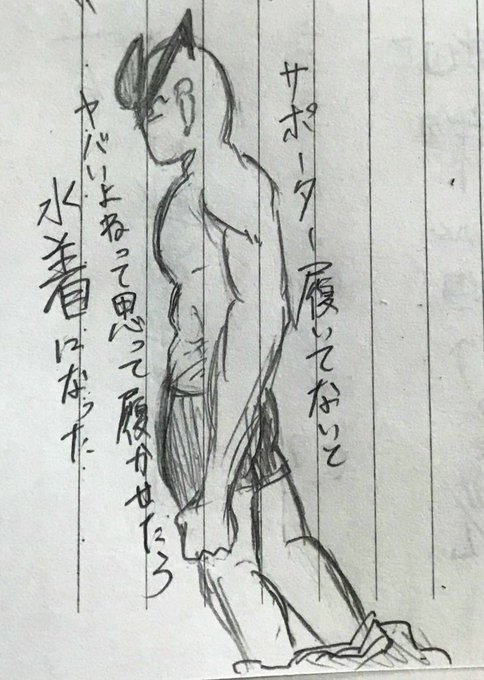 サポーター履いてないと
ヤバいよねって思って履かせたら
水着になった